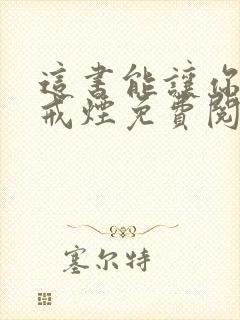 這書能讓你
戒煙免費閱
塞尔特